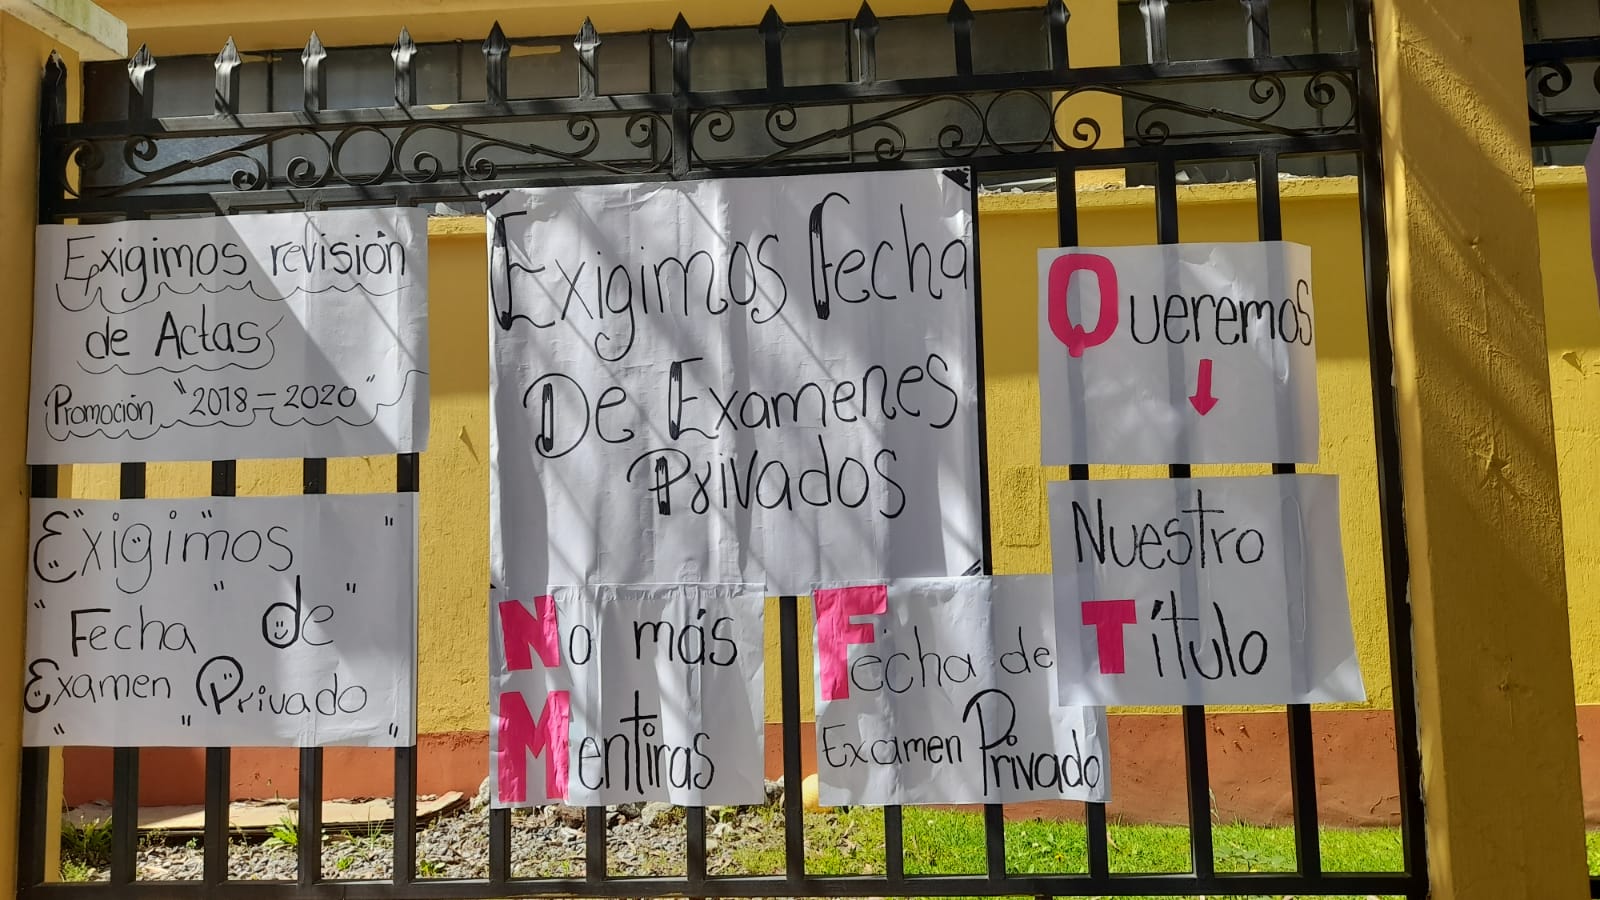 Exigimos revisión
de Actas
Promoción "2018-2020"
Exigimos "
"Fecha "de"
Examen Privado
" " "
Exigimos Fecha
De Examenes
Privados
No más
Mentiras
Fecha de
Examen Privado
Queremos
Nuestro
Título